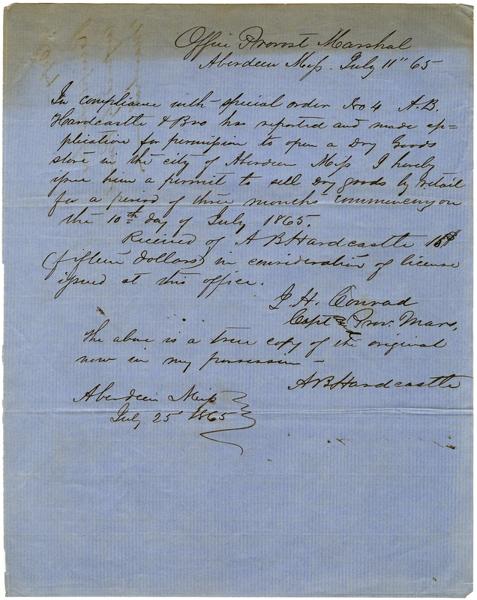 Office Provost Marshal
Aberdeen Miss. July 11" 65
In compliance with special order No 4 A.B.
Hardcastle & Bro has reported and made ap=
plication for permission to open a Dry Goods
store in the city of Aberdeen Miss I hereby
give him a permit to sell Dry goods by retail
for a period of three months commencing on
the 10th day of July 1865.
Received of A B Hardcastle 15$
(fifteen dollars) in consideration of license
issued at this office.
J H. Conrad
Capt and Prov. Mars.
The above is a true copy of the original
now in my possession -
A B Hardcastle
Aberdeen Miss
July 25 1865